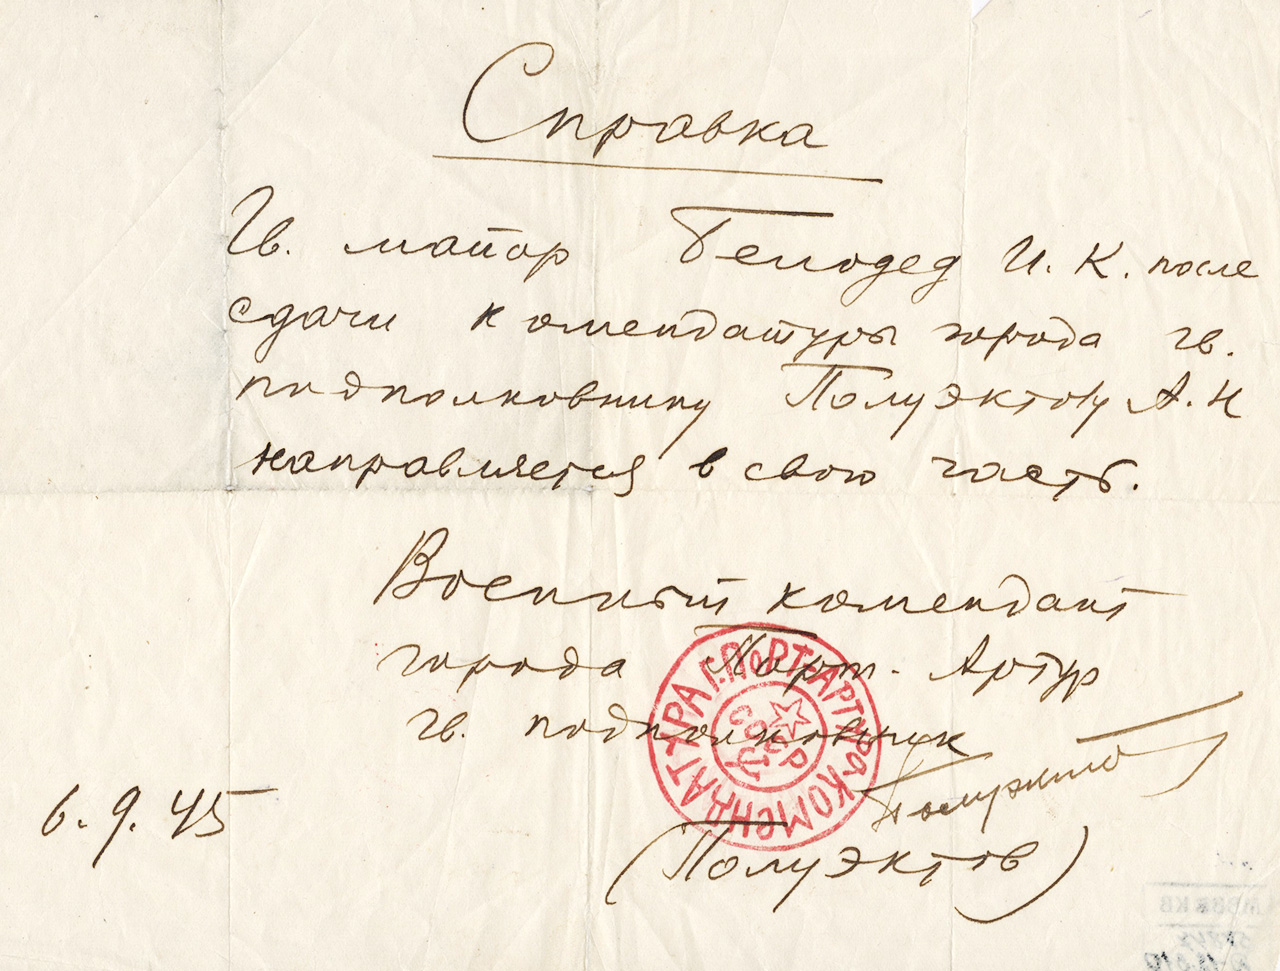 Справка
Гв. майор Белодед И. К. после
сдачи комендатуры города гв.
подполковнику Полуэктову А. Н
направляется в свою часть.
Военный комендант
города Порт-Артур
гв. подполковник
Полуэктов
6. 9. 45
(Полуэктов)
КОМЕНДАТУРА Г. ПОРТ-АРТУРА
СССР